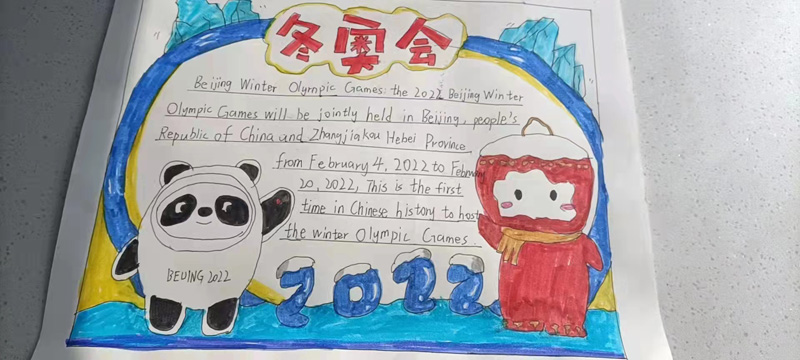 冬奥会
Beijing Winter Olympic Games: the 2022 Beijing Winter
Olympic Games will be jointly held in Beijing, people's
Republic of China and Zhangjiakou Hebei Province
from February 4, 2022 to February
20, 2022, This is the first
time in Chinese history to host
the winter Olympic Games.
BEIJING 2022
2022